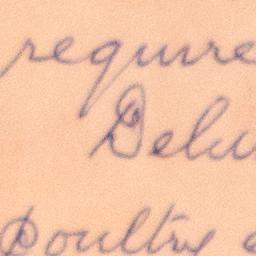 require
Delu
poultry